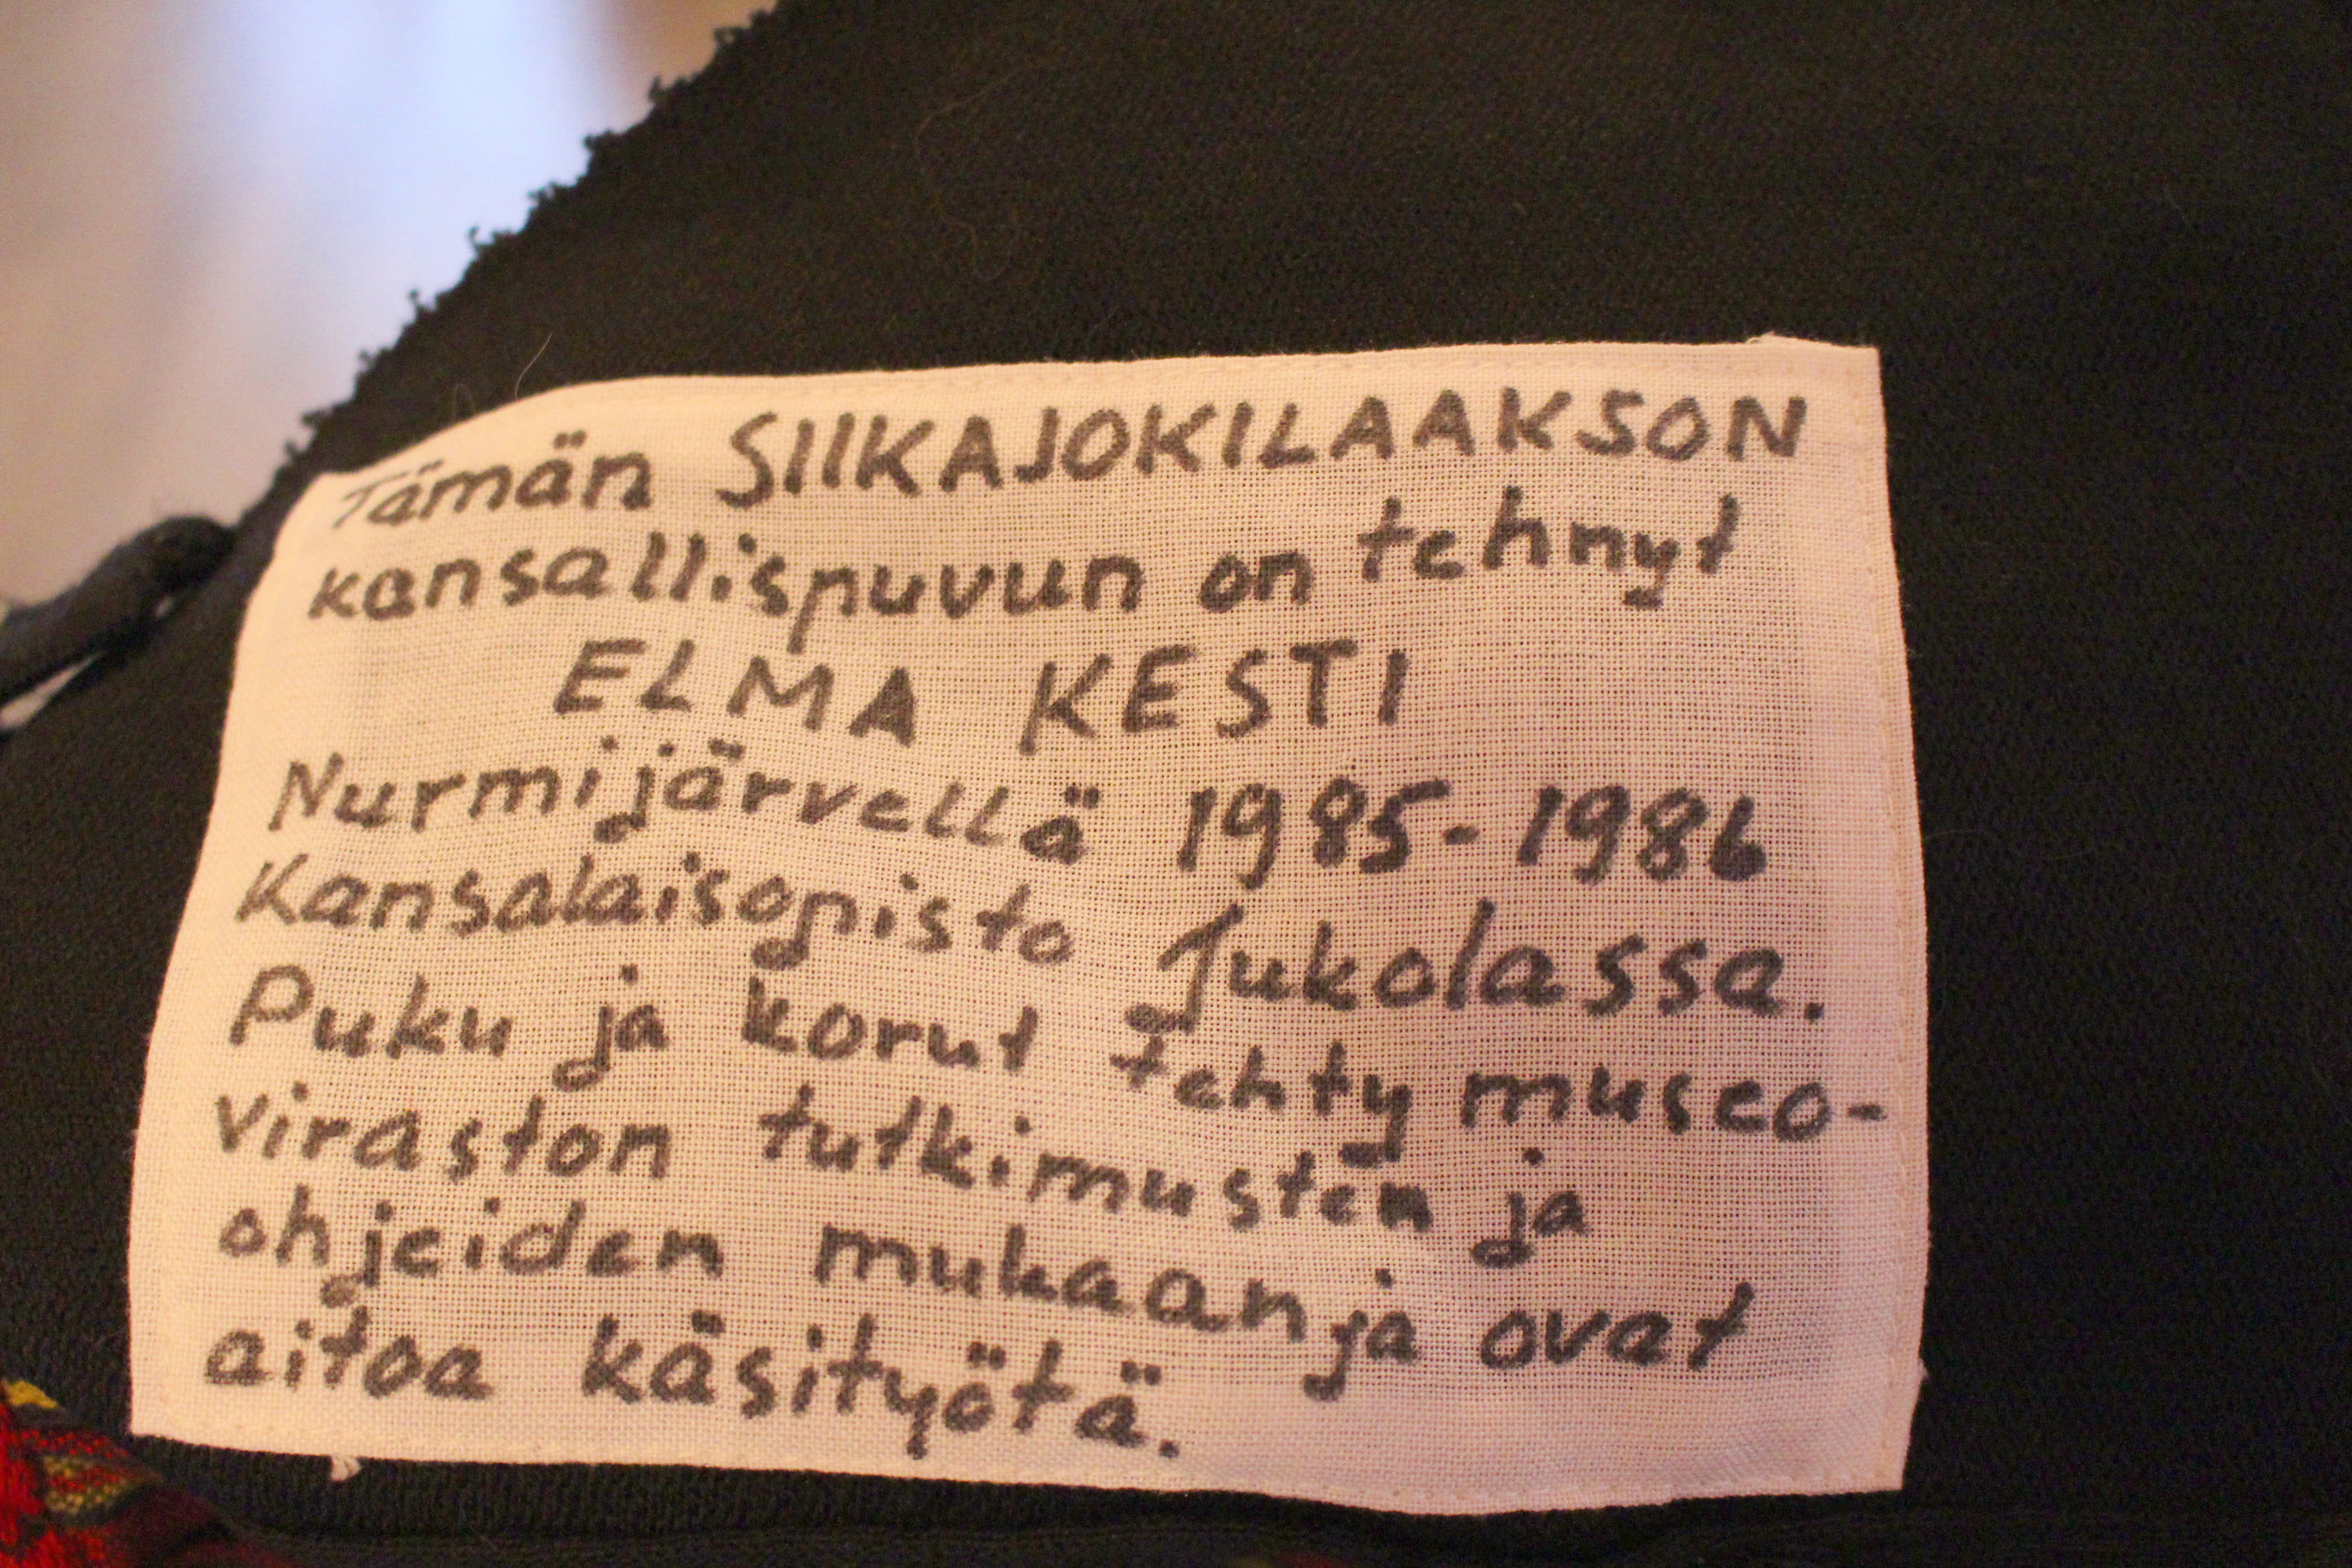 Tämän SIIKAJOKILAAKSON
kansallispuvun on tehnyt
ELMA KESTI
Nurmijärvellä 1985-1986
Kansalaisopisto Jukolassa.
Puku ja korut tehty museo-
viraston tutkimusten ja
ohjeiden mukaan ja ovat
aitoa käsityötä.